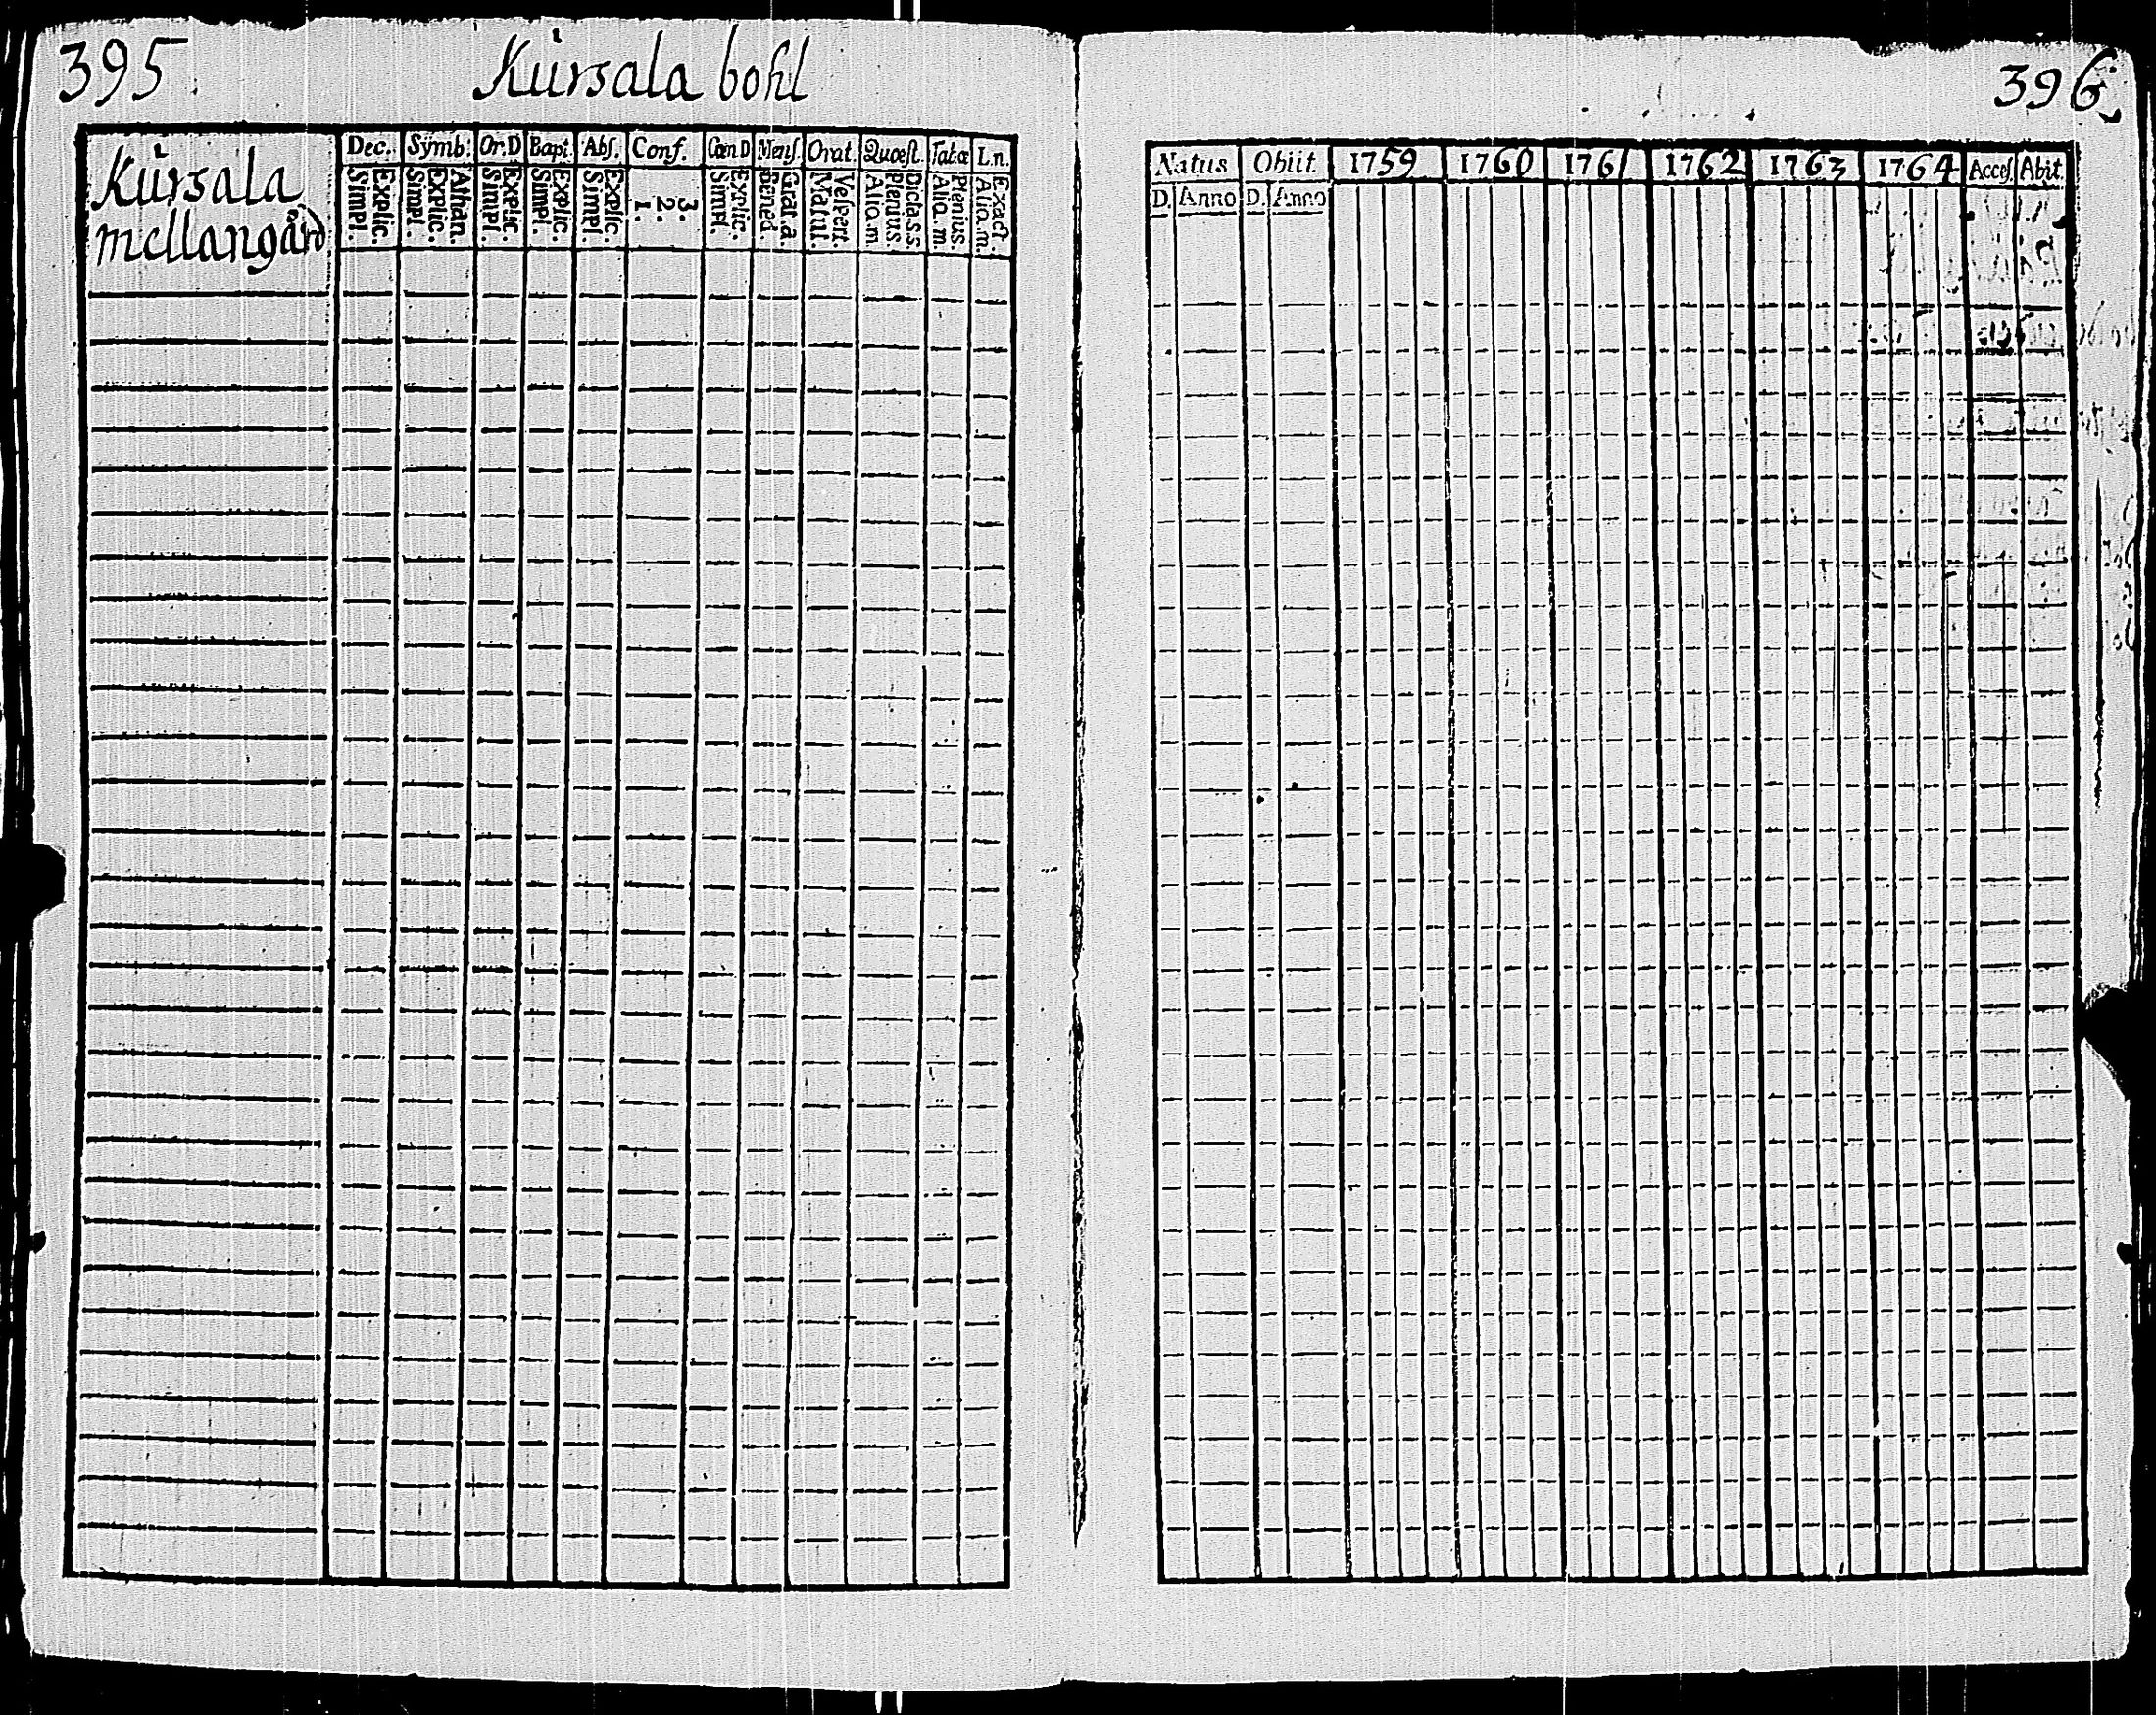 395. Kúrsala bohl
Kúrsala
mellangård
Dec. Sÿmb. Or.D Bapt. Abs. Conf. Cœn D Mens. Orat. Quæst. Tabæ L.n.
Explic. Simpl.
Athan. Explic. Simpl.
Explic. Simpl.
Explic. Simpl.
Explic. Simpl.
3. 2. 1.
Explic. Simpl.
Grat.a. Bened.
Vespert. Matut.
Dicta.s.s. Plenius Alio.m.
Plenius. Alio.m.
Exact. Alia.m.
396.
Natus Obiit. 1759 1760 1761 1762 1763 1764 Acces. Abit.
D. Anno D. Anno